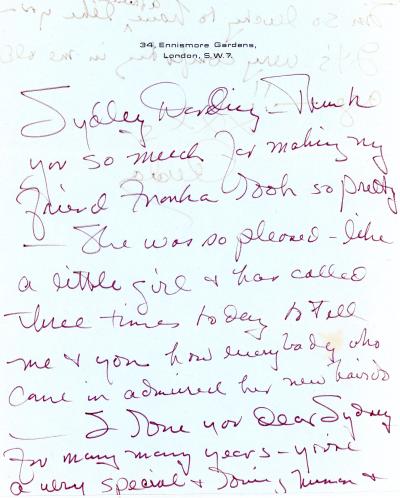 34, Ennismore Gardens,
London, S.W.7.
Sydney Darling – Thank
you so much for making my
friend look so pretty
– She was so pleased – like
a little girl & has called
three times today to tell
me & you how everybody who
came in admired her new hairdo
– I love you dear Sydney
for many many years – you're
a very special & loving human &